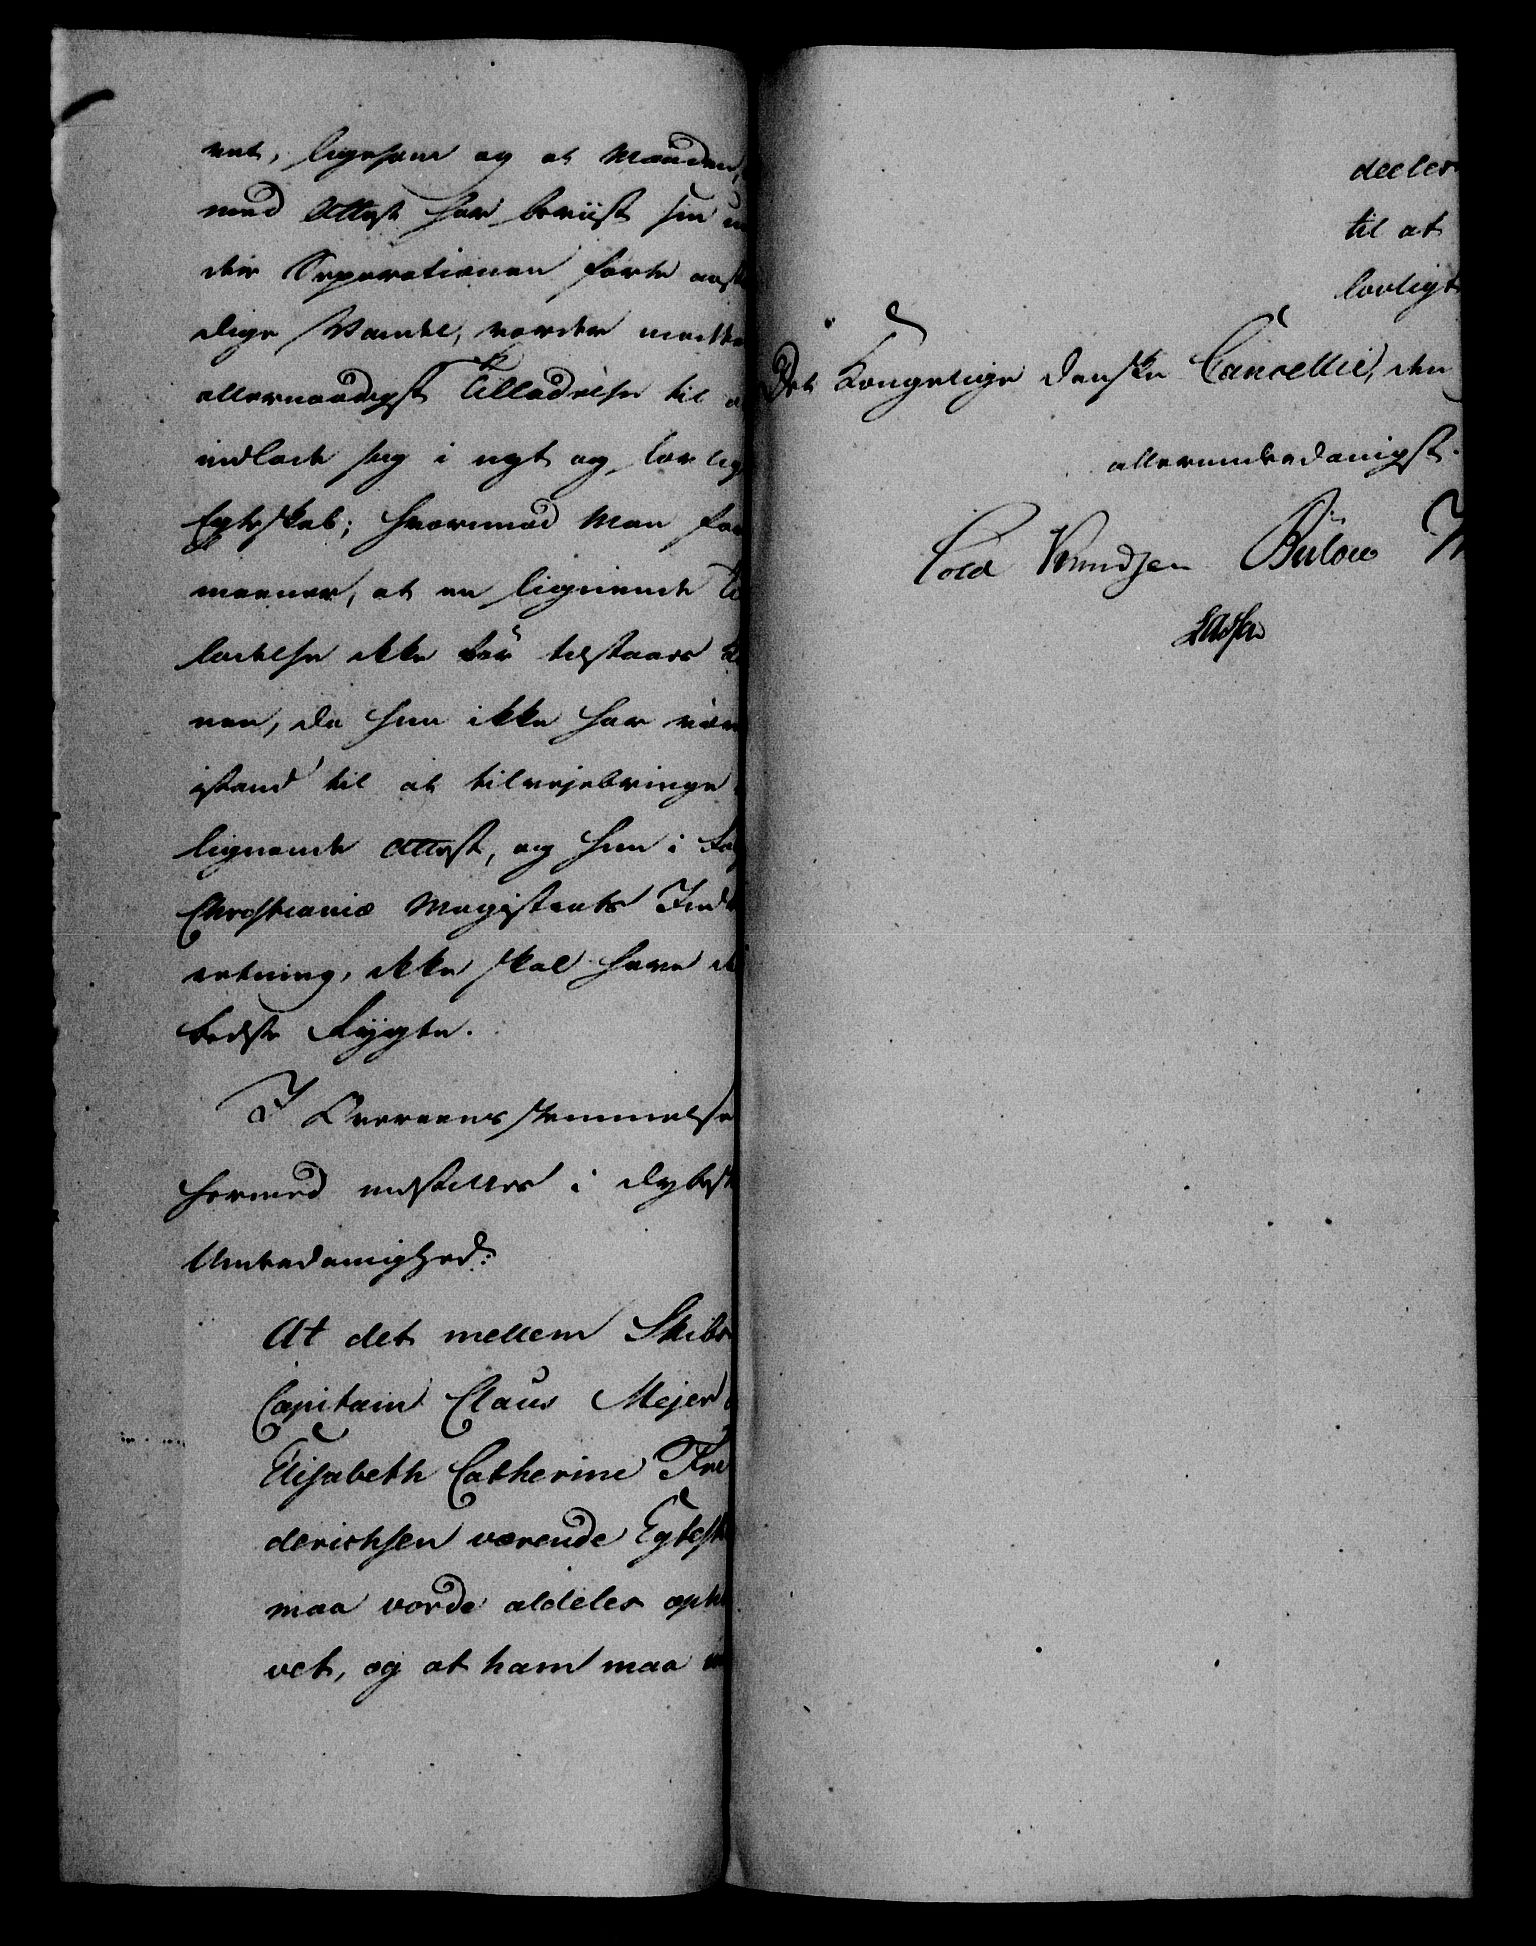 vet, ligesom og at Manden,
med Attest har beviist sin un
der Separationen førte anstæ
dige Vandel, vorder meddee
allernaadigst Tilladelse til a
indlade sig i nyt og lovlig
Egteskab; hvorimod Man for
meener, at en lignende Til
ladelse ikke bør tilstaaes
nen, da hun ikke har være
istand til at tilvejebringe
lignende Attest, og hun i Føl
Christianiæ Magistrats Indb
retning, ikke skal have d
bedste Rygte.
I Overeensstemmelse
hermed indstilles i dybest
Underdanighed:
At det mellem Skibs
Capitain Claus Mejer
Elisabeth Catherine Fre
derichsen værende Egtesk
maa vorde aldeles ophæ
vet, og at ham maa
deeles
til at
lovligt
Det Kongelige danske Cancellie, den
allerunderdanigst.
Cold Knudsen Bülow
Lassen